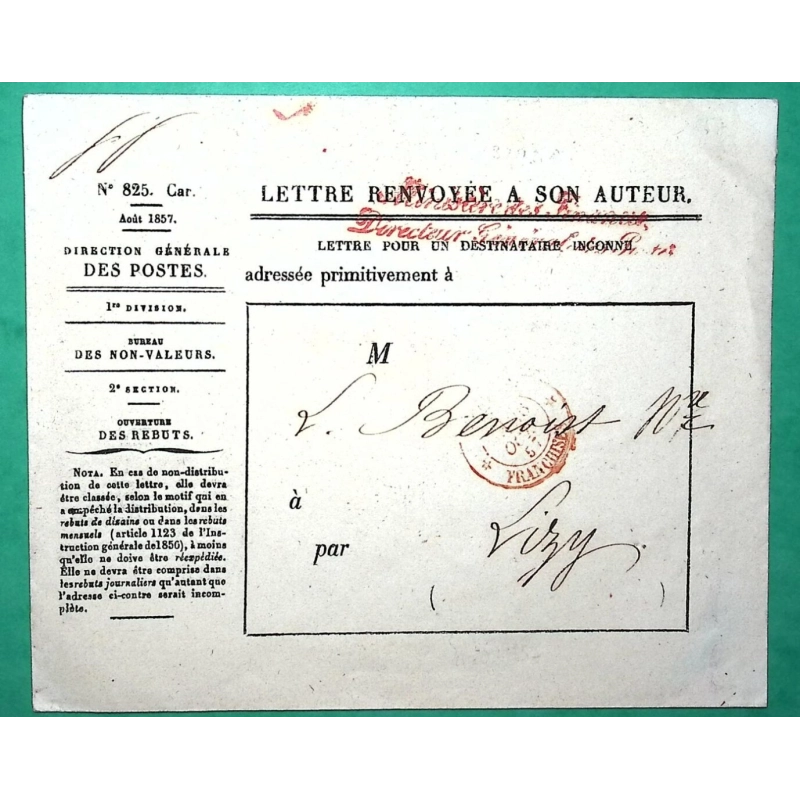 N° 825. Car.
Août 1857.
DIRECTION GÉNÉRALE
DES POSTES.
1re DIVISION.
BUREAU
DES NON-VALEURS.
2e SECTION.
OUVERTURE
DES REBUTS.
NOTA. En cas de non-distribu-
tion de cette lettre, elle devra
être classée, selon le motif qui en
a empêché la distribution, dans les
rebuts de dizaine ou dans les rebuts
mensuels (article 1123 de l'Ins-
truction générale de 1856), à moins
qu'elle ne doive être réexpédiée.
Elle ne devra être comprise dans
les rebuts journaliers qu'autant que
l'adresse ci-contre serait incom-
plète.
LETTRE RENVOYÉE A SON AUTEUR.
Ministère des Finances
Directeur Général des
LETTRE POUR UN DESTINATAIRE INCONNU
adressée primitivement à
M
L. Benoist
FRANCHISE
à
par Lizy.
( )